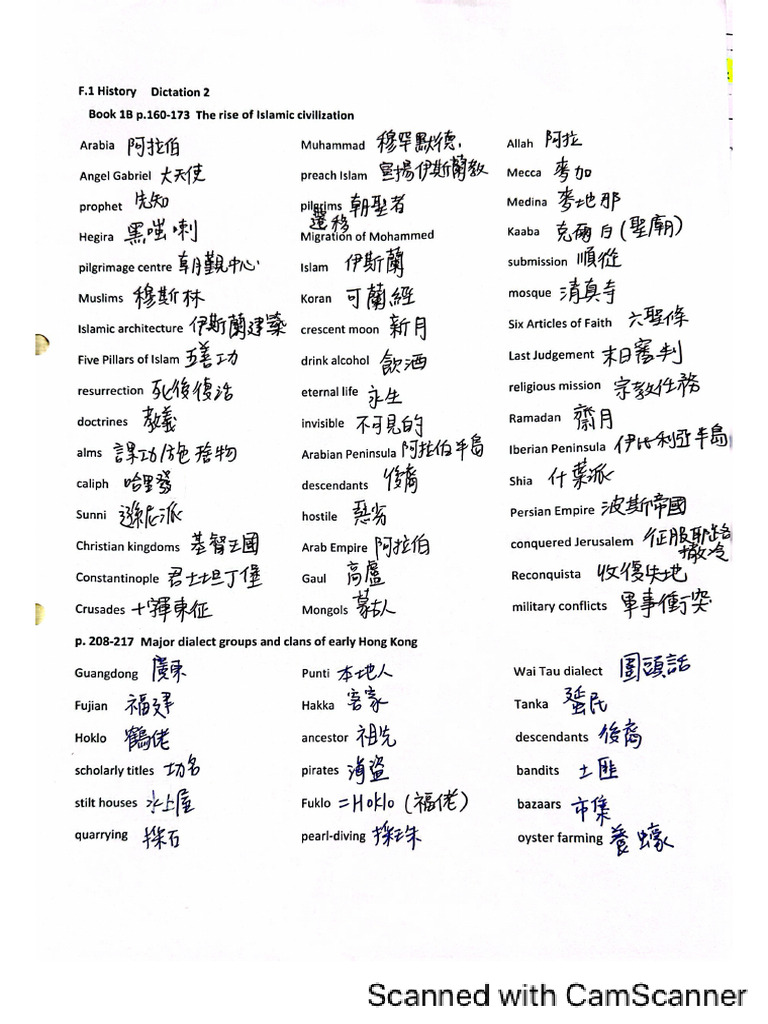 F.1 History Dictation 2
Book 1B p.160-173 The rise of Islamic civilization
Arabia 阿拉伯 Muhammad 穆罕默德 Allah 阿拉
Angel Gabriel 大天使 preach Islam 宣揚伊斯蘭教 Mecca 麥加
prophet 先知 pilgrims 朝聖者 Medina 麥地那
Hegira 黑嗤喇 遷移 Migration of Mohammed Kaaba 克爾白(聖廟)
pilgrimage centre 朝觀中心 Islam 伊斯蘭 submission 順從
Muslims 穆斯林 Koran 可蘭經 mosque 清真寺
Islamic architecture 伊斯蘭建築 crescent moon 新月 Six Articles of Faith 六聖條
Five Pillars of Islam 五善功 drink alcohol 飲酒 Last Judgement 末日審判
resurrection 死後復活 eternal life 永生 religious mission 宗教任務
doctrines 教義 invisible 不可見的 Ramadan 齋月
alms 課功/施捨物 Arabian Peninsula 阿拉伯半島 Iberian Peninsula 伊比利亞半島
caliph 哈里發 descendants 後裔 Shia 什葉派
Sunni 遜尼派 hostile 惡劣 Persian Empire 波斯帝國
Christian kingdoms 基督王國 Arab Empire 阿拉伯 conquered Jerusalem 征服耶路撒冷
Constantinople 君士坦丁堡 Gaul 高盧 Reconquista 收復失地
Crusades 十字軍東征 Mongols 蒙古人 military conflicts 軍事衝突
p. 208-217 Major dialect groups and clans of early Hong Kong
Guangdong 廣東 Punti 本地人 Wai Tau dialect 圍頭話
Fujian 福建 Hakka 客家 Tanka 蜑民
Hoklo 鶴佬 ancestor 祖先 descendants 後裔
scholarly titles 功名 pirates 海盜 bandits 土匪
stilt houses 水上屋 Fuklo =Hoklo (福佬) bazaars 市集
quarrying 採石 pearl-diving 採珠 oyster farming 養蠔
Scanned with CamScanner